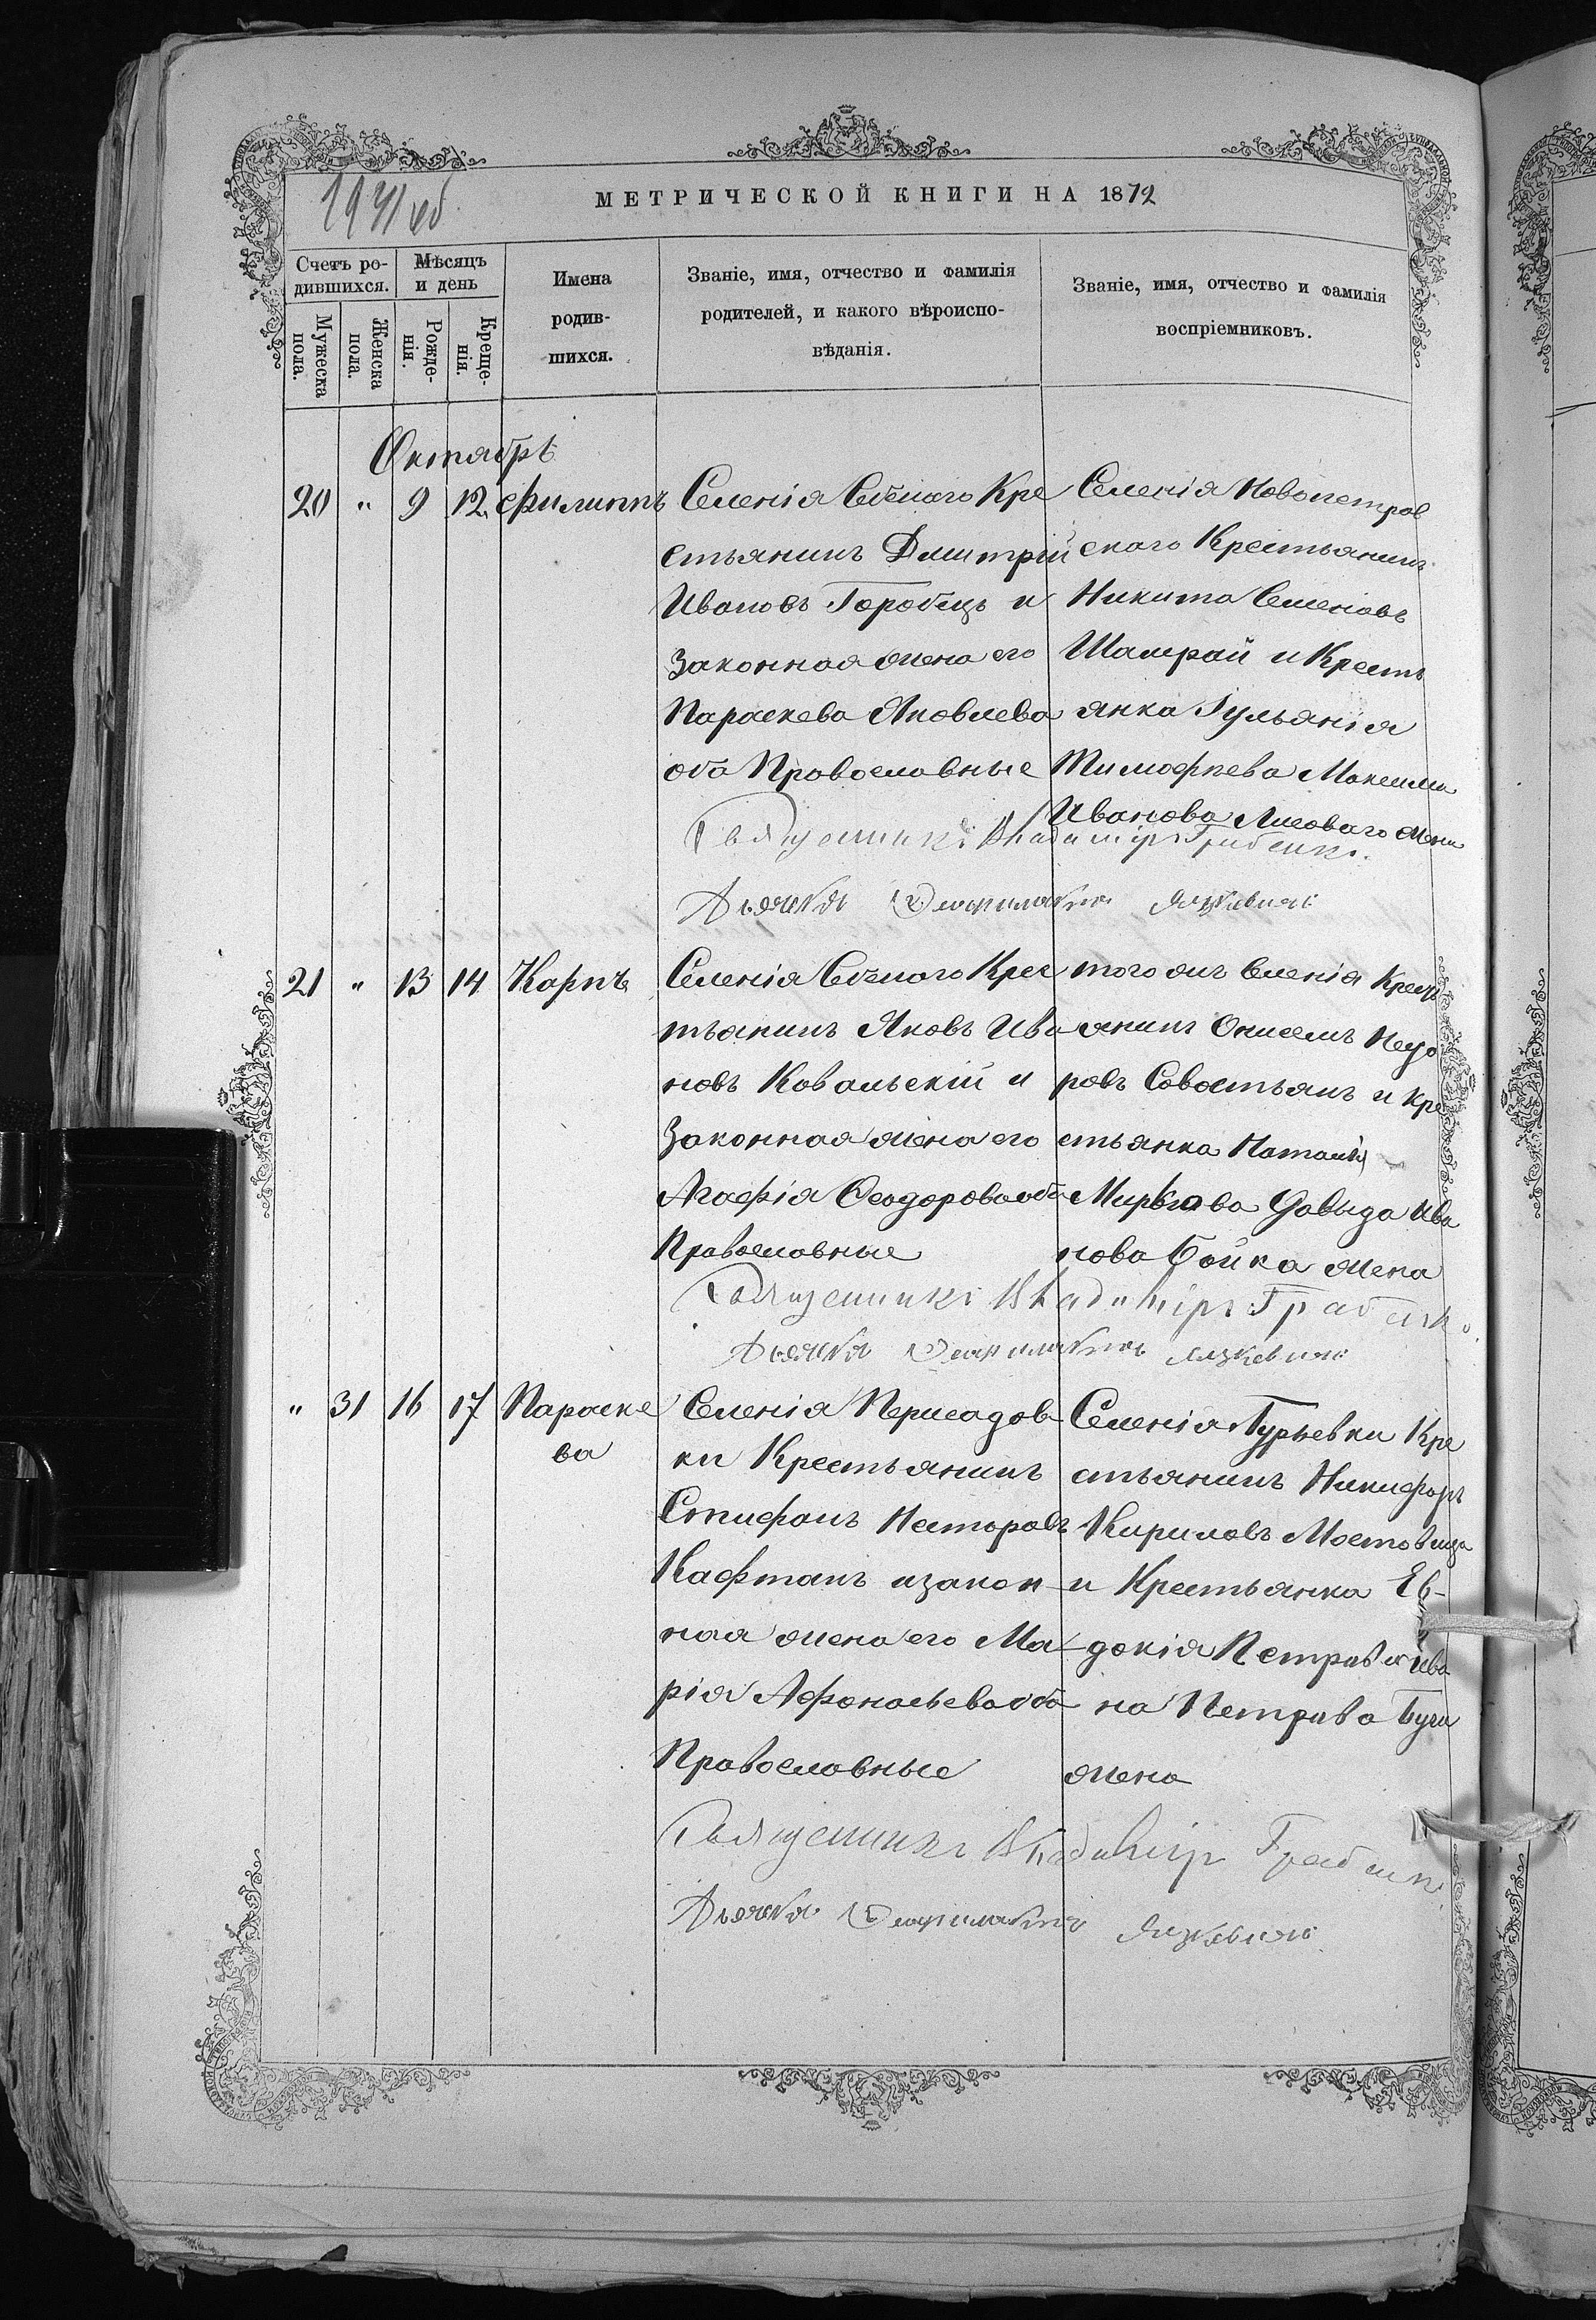 МЕТРИЧЕСКОЙ КНИГИ НА 1872
Счетъ ро-
дившихся.
Мужеска
пола.
Женска
пола.
Мѣсяцъ
и день
Рожде-
нія.
Креще-
нія.
Имена
родив-
шихся.
Званіе, имя, отчество и фамилія
родителей, и какого вѣроиспо-
вѣданія.
Званіе, имя, отчество и фамилія
воспріемниковъ.
Октябрь
20 " 9 12 Филиппъ
Селенія Себеного Кре
стьянинъ Дмитрій
Ивановъ Горобецъ и
Законная жена его
Параскева Яковлева
оба Православные
Селенія Новопетров
скаго Крестьянинъ
Никита Семеновъ
Шамрай и Кресть
янка Гульянія
Тимофѣева Максима
Иванова Лисоваго жена
Священникъ Владиміръ Грабенко.
Дьячекъ Феофилактъ Язкевичъ
21 " 13 14 Карпъ
Селенія Себеного Крес
тьянинъ Яковъ Ива
новъ Ковальскій и
Законная жена его
Агафія Феодорова оба
Православные
того жъ Селенія Крест
янинъ Онисемъ
ровъ Совостьянъ и Кре
стьянка Наталія
Давыда Ива
нова Бойка жена
Священникъ Владиміръ Грабенко.
Дьячекъ Феофилактъ Язкевичъ
" 31 16 17 Параске
ва
Селенія Пересадов-
ки Крестьянинъ
Стефанъ Несторовъ
Кафтанъ и закон-
ная жена его Ма-
рія Афонасьева оба
Православные
Селенія Гурьевки Кре
стьянинъ Никифоръ
Кириловъ Мостовица
и Крестьянка Ев-
докія Петрива Ива
на Петрива Буги
жена
Священникъ Владиміръ Грабенко
Дьячекъ Феофилактъ Язкевичъ